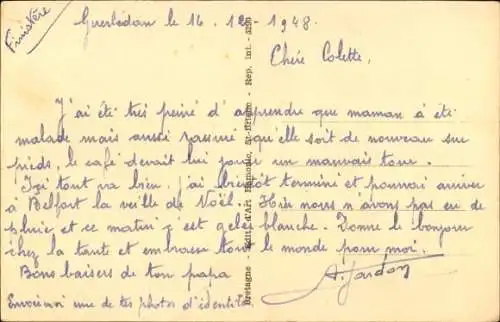 Finistère
Guerlédan le 16. 12 - 1948.
Chère Colette,
J'ai été très peiné d'apprendre que maman a été
malade mais aussi rassuré qu'elle soit de nouveau sur
pieds, le café devait lui jouer un mauvais tour.
Ici tout va bien, j'ai bientôt terminé et pourrai arriver
à Belfort la veille de Noël. Hier nous n'avons pas eu de
pluie et ce matin c'est gelée blanche. Donne le bonjour
chez la tante et embrasse tout le monde pour moi.
Bons baisers de ton papa
Envoie moi une de tes photos d'identité.
Bretagne - Edit. d'Art - St-Brieuc - Rep. int.